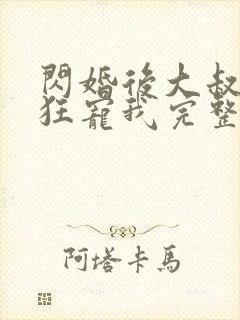 閃婚後大叔
狂寵我完整
阿塔卡馬